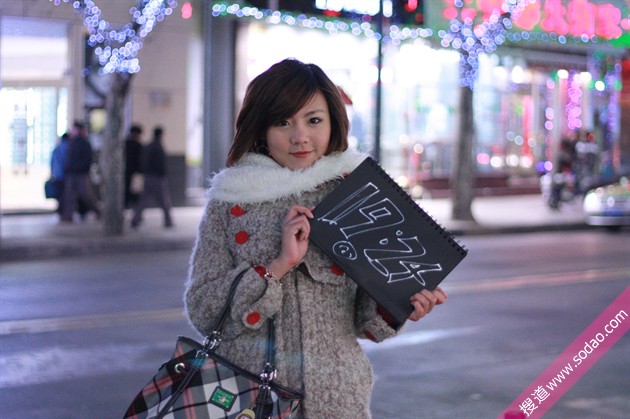 19:24
搜道www.sodao.com